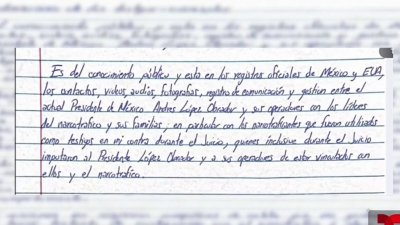 Es del conocimiento público y esta en los registros oficiales de México y EUA,
los contactos, videos, audios, fotografias, registro de comunicación y gestion entre el
actual Presidente de México Andres López Obrador y sus operadores con los líderes
del narcotrafico y sus familias, en particular con los narcotraficantes que fueron utilizados
como testigos en mi contra durante el Juicio, quienes inclusive durante el Juicio
imputaron al Presidente López Obrador y a sus operadores de estar vinculados con
ellos y el narcotrafico.